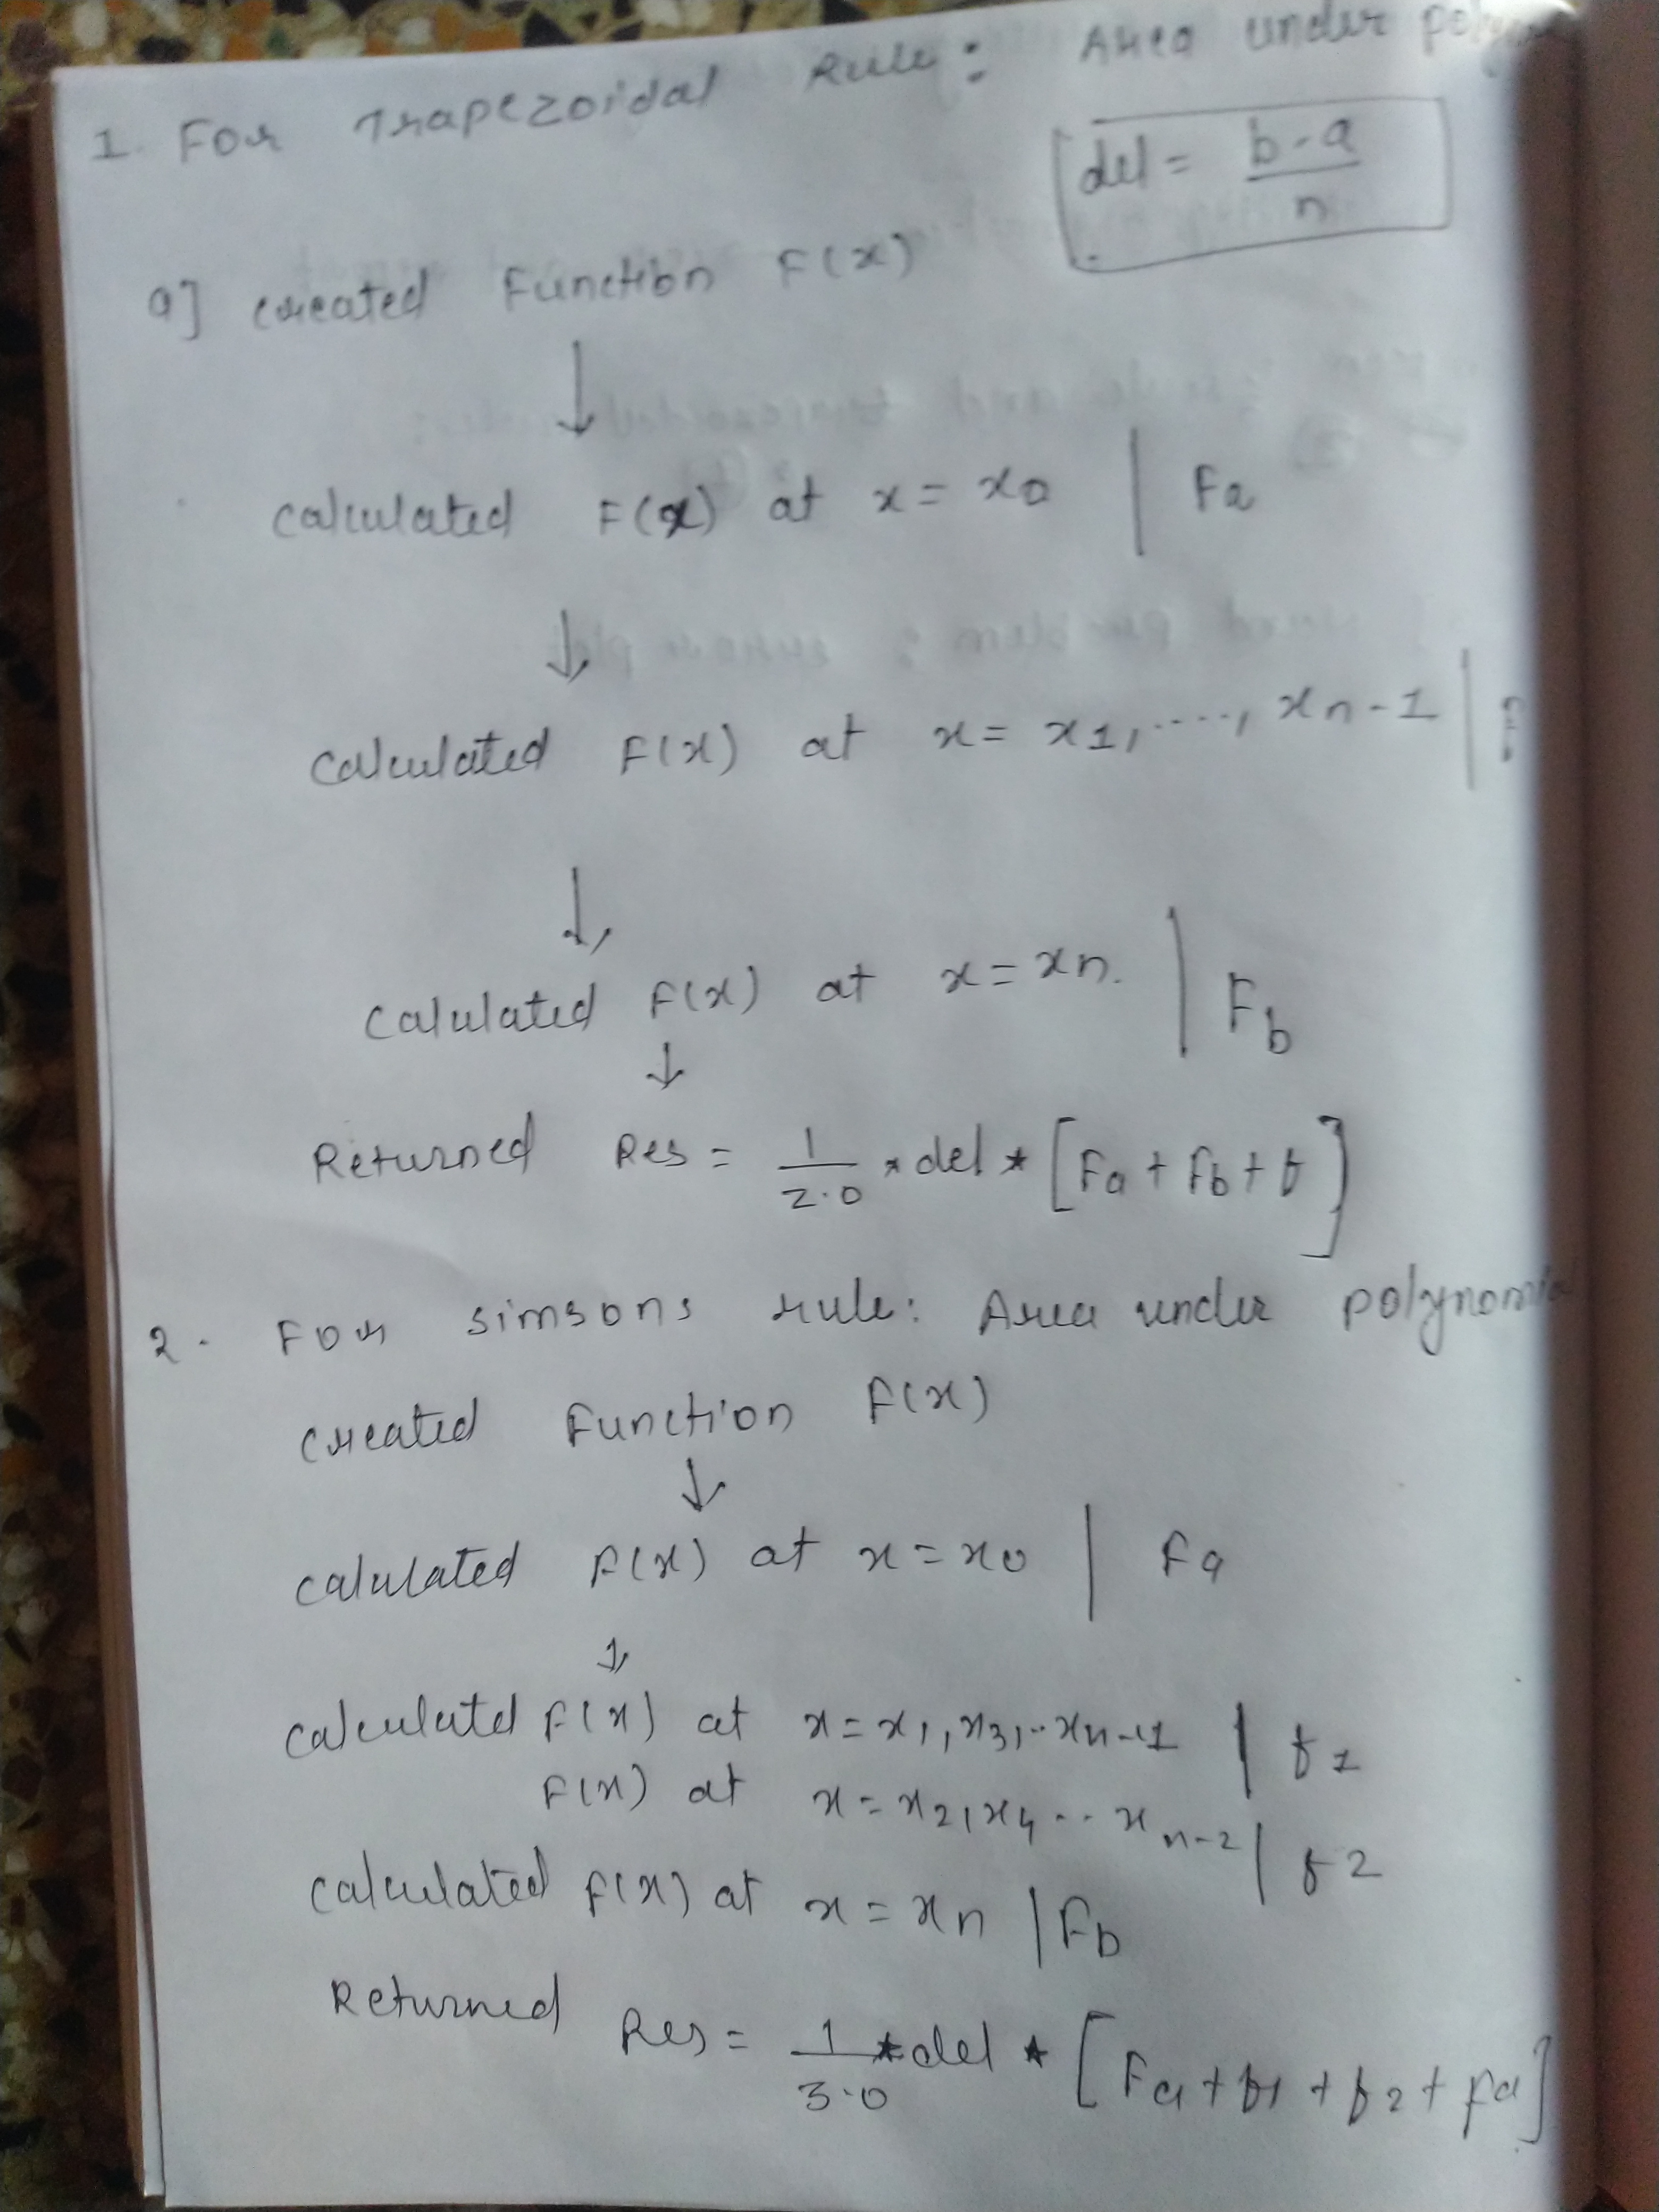 1. For Trapezoidal Rule: Area under
del = b-a / n
a] created Function F(x)
↓
calculated F(x) at x = x0 | Fa
↓
calculated F(x) at x = x1, ....., xn-1 |
↓
calulated F(x) at x = xn. | Fb
↓
Returned Res = 1/2.0 * del * [Fa + Fb + f]
2. For simsons rule: Area under
created Function F(x)
↓
calulated F(x) at x = x0 | Fa
↓
calculated F(x) at x = x1, x3, .. xn-1 | f1
F(x) at x = x2, x4 .. xn-2 | f2
calculated F(x) at x = xn | Fb
Returned Res = 1/3.0 * del * [Fa + f1 + f2 + Fa]